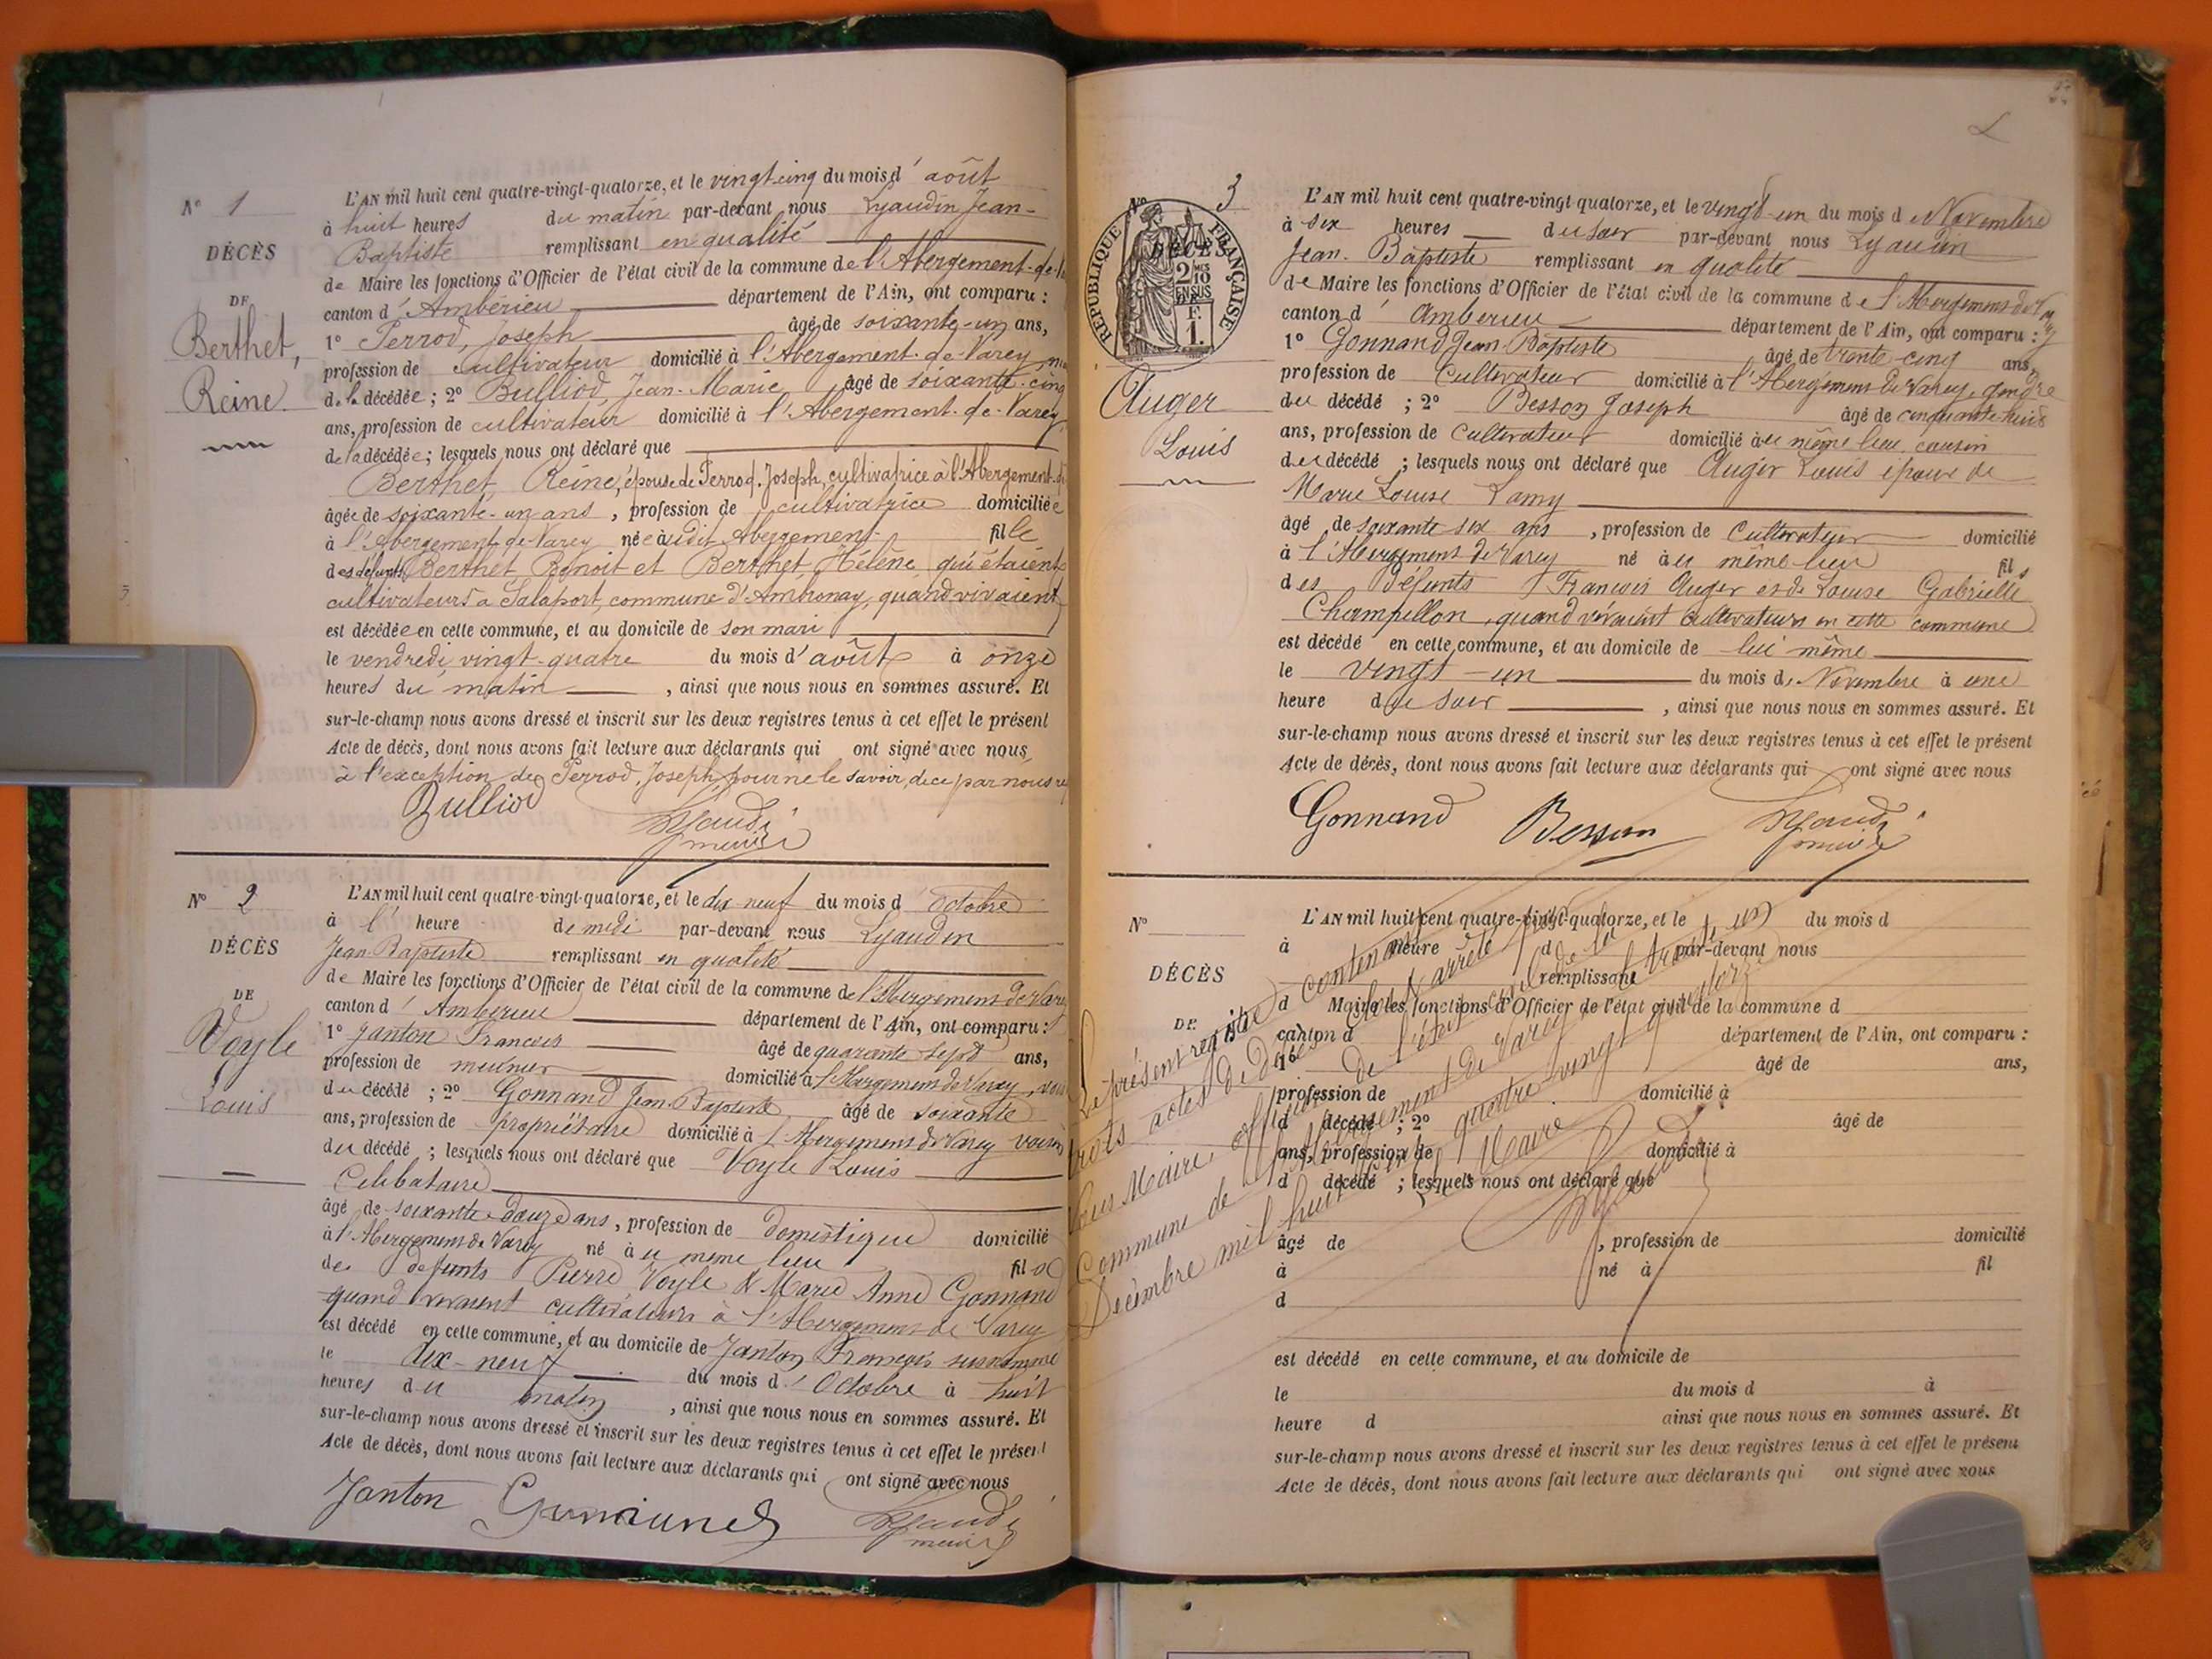 N° 1
DÉCÈS
DE
Berthet,
Reine.
L'AN mil huit cent quatre-vingt-quatorze, et le vingt-cinq du mois d'août
à huit heures du matin par-devant nous Lyaudin Jean-
Baptiste remplissant en qualité
de Maire les fonctions d'Officier de l'état civil de la commune de l'Abergement-de-
canton d'Ambérieu département de l'Ain, ont comparu :
1° Perrod, Joseph âgé de soixante-un ans,
profession de cultivateur domicilié à l'Abergement-de-Varey,
de la décédée ; 2° Bulliod, Jean-Marie âgé de soixante-cinq
ans, profession de cultivateur domicilié à l'Abergement-de-Varey,
de la décédée ; lesquels nous ont déclaré que
Berthet, Reine, épouse de Perrod, Joseph, cultivatrice à l'Abergement-d
âgée de soixante-un ans, profession de cultivatrice domiciliée
à l'Abergement-de-Varey née audit Abergement fille
des défunts Berthet Benoit et Berthet Hélène qui étaient
cultivateurs à Salaport, commune d'Ambronay, quand vivaient
est décédée en cette commune, et au domicile de son mari
le vendredi vingt-quatre du mois d'août à onze
heures du matin, ainsi que nous nous en sommes assuré. Et
sur-le-champ nous avons dressé et inscrit sur les deux registres tenus à cet effet le présent
Acte de décès, dont nous avons fait lecture aux déclarants qui ont signé avec nous,
à l'exception de Perrod, Joseph pour ne le savoir, de ce par nous
Bulliod Lyaudin
maire
N° 2
DÉCÈS
DE
Voyle
Louis
L'AN mil huit cent quatre-vingt-quatorze, et le dix neuf du mois d'Octobre
à l'heure de midi par-devant nous Lyaudin
Jean Baptiste remplissant en qualité
de Maire les fonctions d'Officier de l'état civil de la commune de l'Abergement de Varey
canton d'Amberieu département de l'Ain, ont comparu :
1° Janton François âgé de quarante sept ans,
profession de meunier domicilié à l'Abergement de Varey,
du décédé ; 2° Gonnand Jean-Baptiste âgé de soixante
ans, profession de propriétaire domicilié à l'Abergement de Varey voisin
du décédé ; lesquels nous ont déclaré que Voyle Louis
Celibataire
âgé de soixante-douze ans, profession de domestique domicilié
à l'Abergement de Varey né à u meme lieu fils
des défunts Pierre Voyle & Marie Anne Gonnand
quand vivaient cultivateurs à l'Abergement de Varey
est décédé en cette commune, et au domicile de Janton François susnommé
le dix-neuf du mois d'Octobre à huit
heures du matin, ainsi que nous nous en sommes assuré. Et
sur-le-champ nous avons dressé et inscrit sur les deux registres tenus à cet effet le présent
Acte de décès, dont nous avons fait lecture aux déclarants qui ont signé avec nous
Janton Gonnand Lyaudin
maire
N° 3
RÉPUBLIQUE FRANÇAISE
DÉCÈS
2 MES
10
EN SUS
F.
1.
Auger
Louis
L'AN mil huit cent quatre-vingt-quatorze, et le vingt-un du mois de Novembre
à six heures du soir par-devant nous Lyaudin
Jean-Baptiste remplissant en qualité
de Maire les fonctions d'Officier de l'état civil de la commune de l'Abergement de Varey
canton d'Amberieu département de l'Ain, ont comparu :
1° Gonnand Jean-Baptiste âgé de trente-cinq ans,
profession de Cultivateur domicilié à l'Abergement de Varey, gendre
du décédé ; 2° Besson Joseph âgé de cinquante-huit
ans, profession de Cultivateur domicilié à u même lieu, cousin
du décédé ; lesquels nous ont déclaré que Auger Louis époux de
Marie Louise Lamy
âgé de soixante six ans, profession de Cultivateur domicilié
à l'Abergement de Varey né à u même lieu fils
des Défunts François Auger et de Louise Gabrielle
Champellon, quand vivaient cultivateurs en cette commune
est décédé en cette commune, et au domicile de lui même
le vingt-un du mois de Novembre à une
heure du soir, ainsi que nous nous en sommes assuré. Et
sur-le-champ nous avons dressé et inscrit sur les deux registres tenus à cet effet le présent
Acte de décès, dont nous avons fait lecture aux déclarants qui ont signé avec nous
Gonnand Besson Lyaudin
maire
N°
DÉCÈS
DE
L'AN mil huit cent quatre-vingt-quatorze, et le du mois d
à heure d par-devant nous
remplissant
d Maire les fonctions d'Officier de l'état civil de la commune d
canton d département de l'Ain, ont comparu :
1° âgé de ans,
profession de domicilié à
d décédé ; 2° âgé de
ans, profession de domicilié à
d décédé ; lesquels nous ont déclaré que
âgé de , profession de domicilié
à né à fil
d
est décédé en cette commune, et au domicile de
le du mois d à
heure d ainsi que nous nous en sommes assuré. Et
sur-le-champ nous avons dressé et inscrit sur les deux registres tenus à cet effet le présent
Acte de décès, dont nous avons fait lecture aux déclarants qui ont signé avec nous
Le présent registre contenant
trois actes de décès clos & arrêté par
nous Maire, officier de l'état civil de la
Commune de l'Abergement de Varey le trente un
Décembre mil huit cent quatre vingt quatorze
Le Maire
Lyaudin